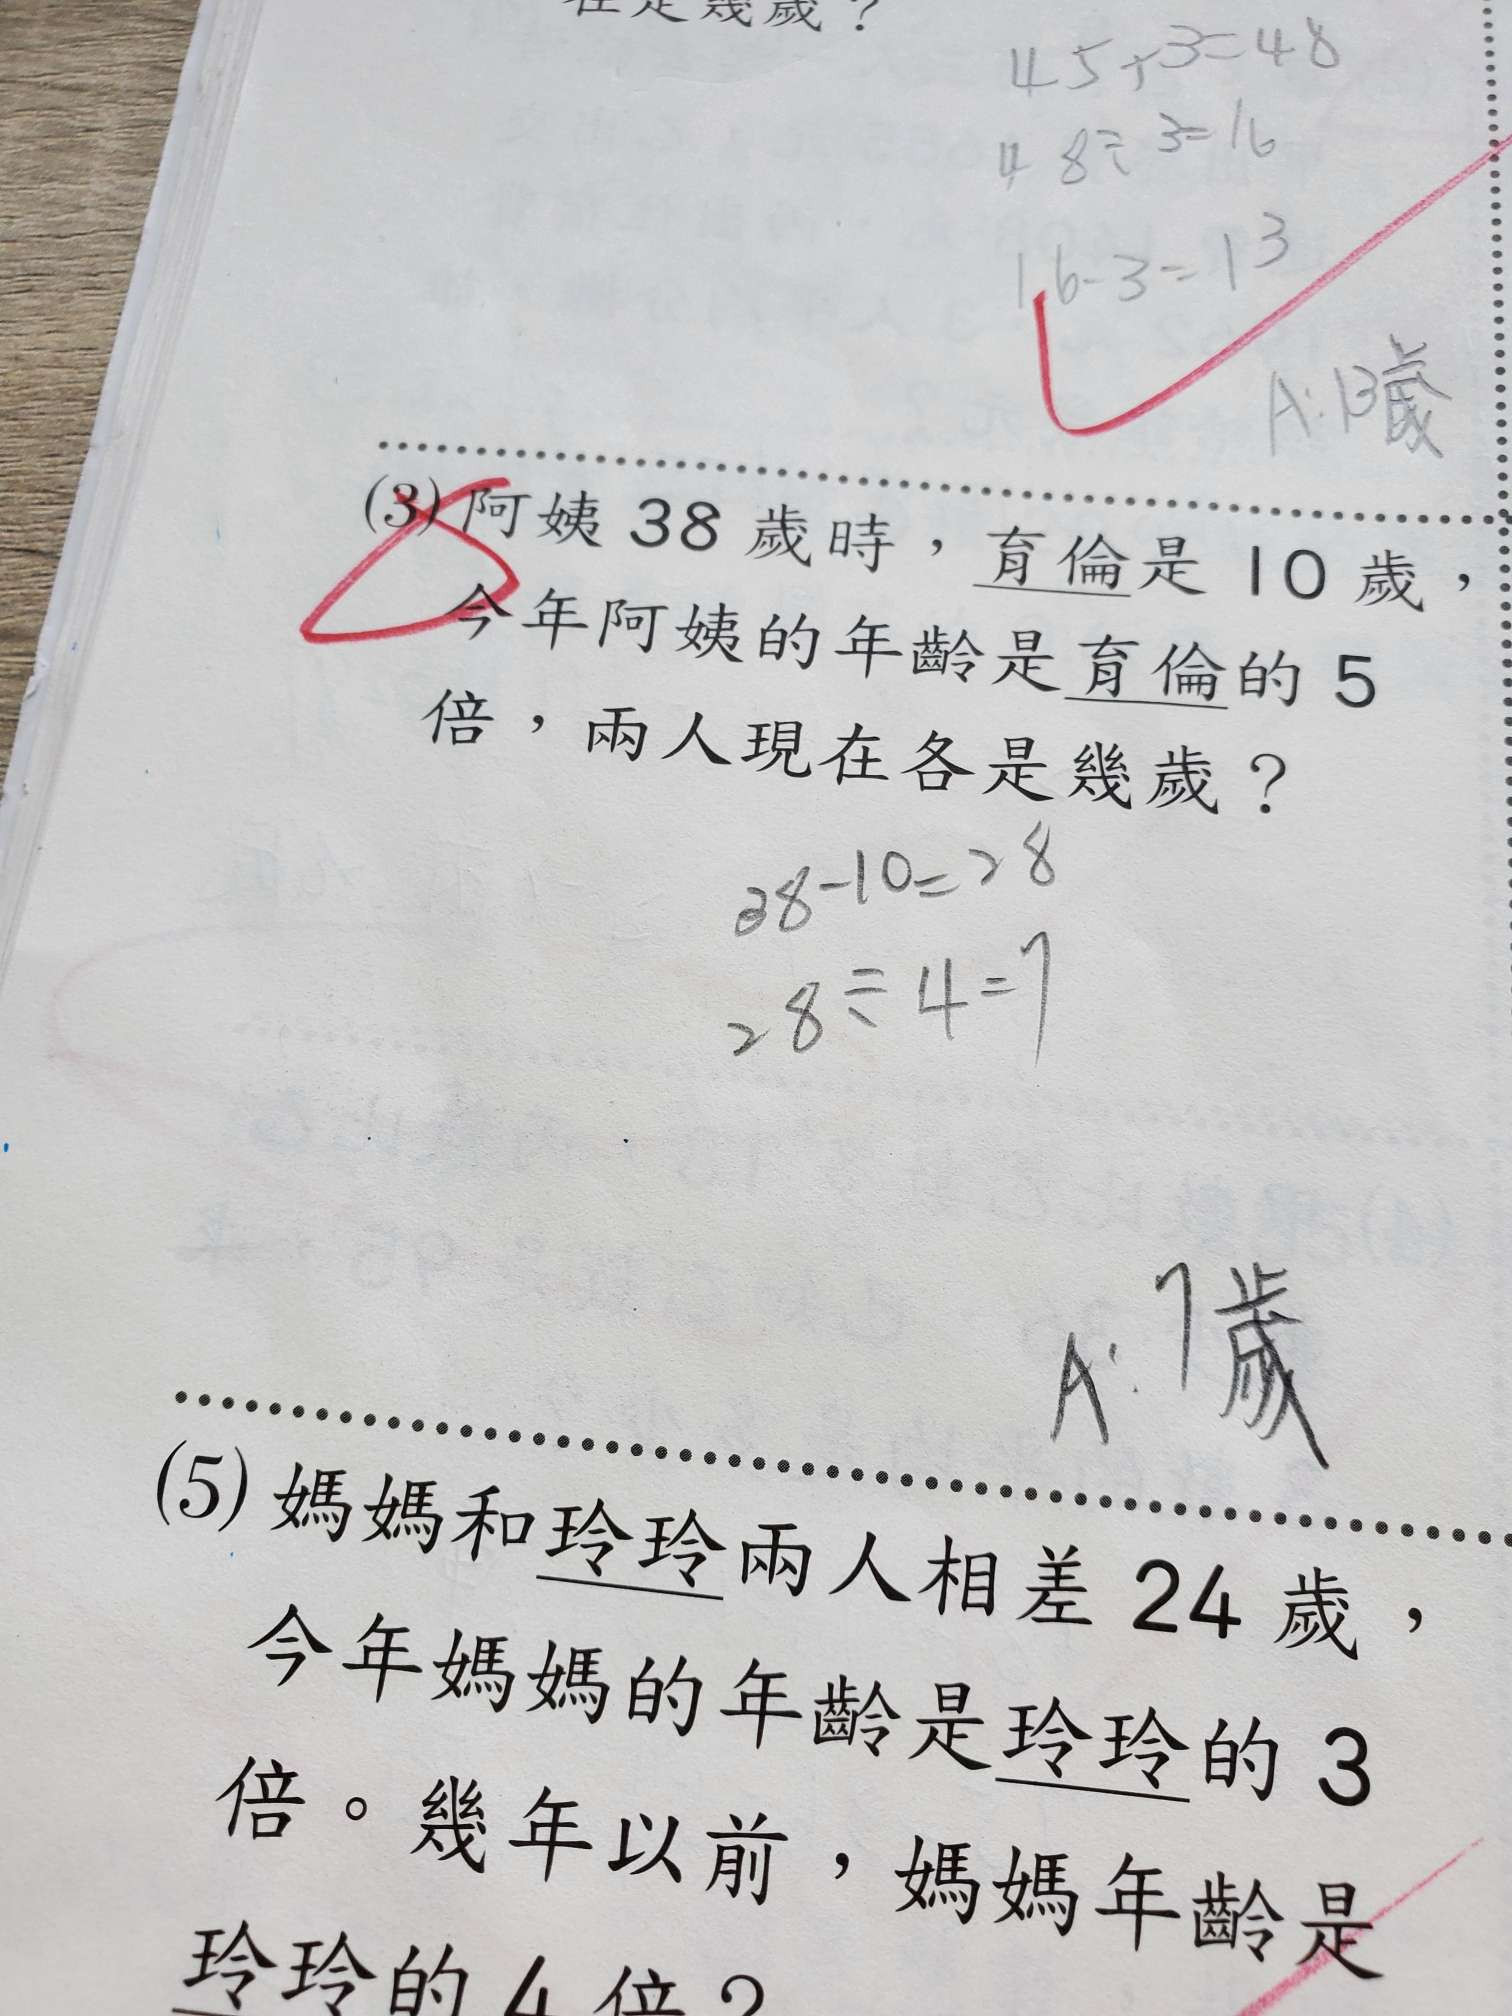 在是幾歲？
45+3=48
48÷3=16
16-3=13
A:13歲
(3)阿姨 38 歲時，育倫是 10 歲，
今年阿姨的年齡是育倫的 5
倍，兩人現在各是幾歲？
38-10=28
28÷4=7
A:7歲
(5)媽媽和玲玲兩人相差 24 歲，
今年媽媽的年齡是玲玲的 3
倍。幾年以前，媽媽年齡是
玲玲的 4 倍？